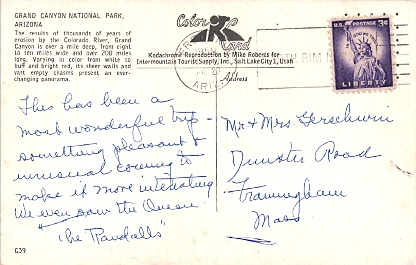 GRAND CANYON NATIONAL PARK,
ARIZONA
The results of thousands of years of
erosion by the Colorado River, Grand
Canyon is over a mile deep, from eight
to ten miles wide and over 200 miles
long. Varying in color from white to
buff and bright red, its sheer walls and
vast empty chasms present an ever-
changing panorama.
Color Card
Kodachrome Reproduction by Mike Roberts for
Intermountain Tourist Supply, Inc., Salt Lake City 1, Utah
Address
ARIZ.
RIM
U.S. POSTAGE 3¢
IN GOD WE TRUST
LIBERTY
This has been a
most wonderful trip -
something pleasant &
unusual coming to
make it more interesting
We even saw the Queen
"The Randalls"
Mr & Mrs Gerschwin
Dunster Road
Framingham
Mass
C39